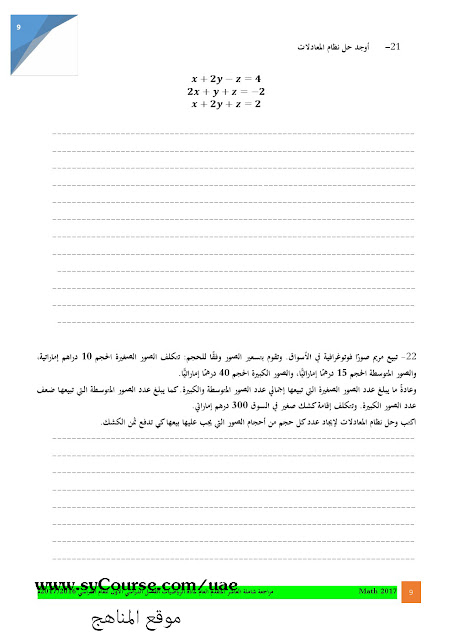 9
21- أوجد حل نظام المعادلات
x + 2y − z = 4
2x + y + z = −2
x + 2y + z = 2
22- تبيع مريم صورًا فوتوغرافية في الأسواق. وتقوم بتسعير الصور وفقًا للحجم: تتكلف الصور الصغيرة الحجم 10 دراهم إماراتية،
والصور المتوسطة الحجم 15 درهمًا إماراتيًا، والصور الكبيرة الحجم 40 درهمًا إماراتيًا.
وعادةً ما يبلغ عدد الصور الصغيرة التي تبيعها إجمالي عدد الصور المتوسطة والكبيرة. كما يبلغ عدد الصور المتوسطة التي تبيعها ضعف
عدد الصور الكبيرة. وتتكلف إقامة كشك صغير في السوق 300 درهم إماراتي.
اكتب وحل نظام المعادلات لإيجاد عدد كل حجم من أحجام الصور التي يجب عليها بيعها كي تدفع ثمن الكشك.
www.syCourse.com/uae
مراجعة شاملة العاشر المتقدم العام مادة الرياضيات الفصل الدراسي الأول للعام الدراسي 2017/2016
Math 2017
9
موقع المناهج